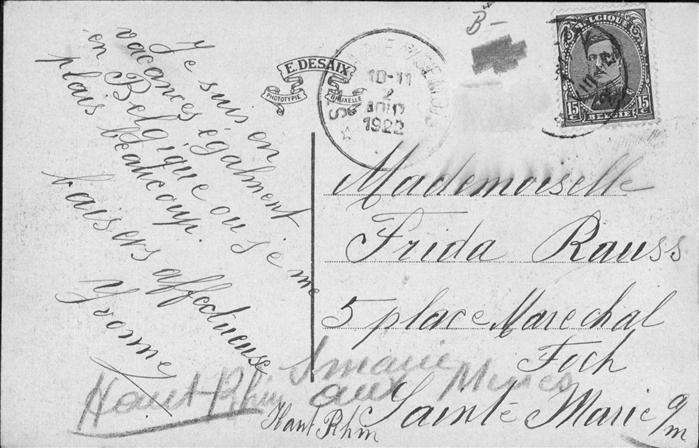 Je suis en
vacances égalment
en Belgique ou je me
plais beaucoup.
baisers affectueuse
Yvonne
E. DESAIX
PHOTOTYPIE
BRUXELLE
10-11
2
1922
B-
BELGIQUE
15 15
BELGIË
Mademoiselle
Frida Rauss
5 place Marechal
Foch
Sainte Marie a/m
Haut Rhin
Haut-Rhin Smarie
aux Mines